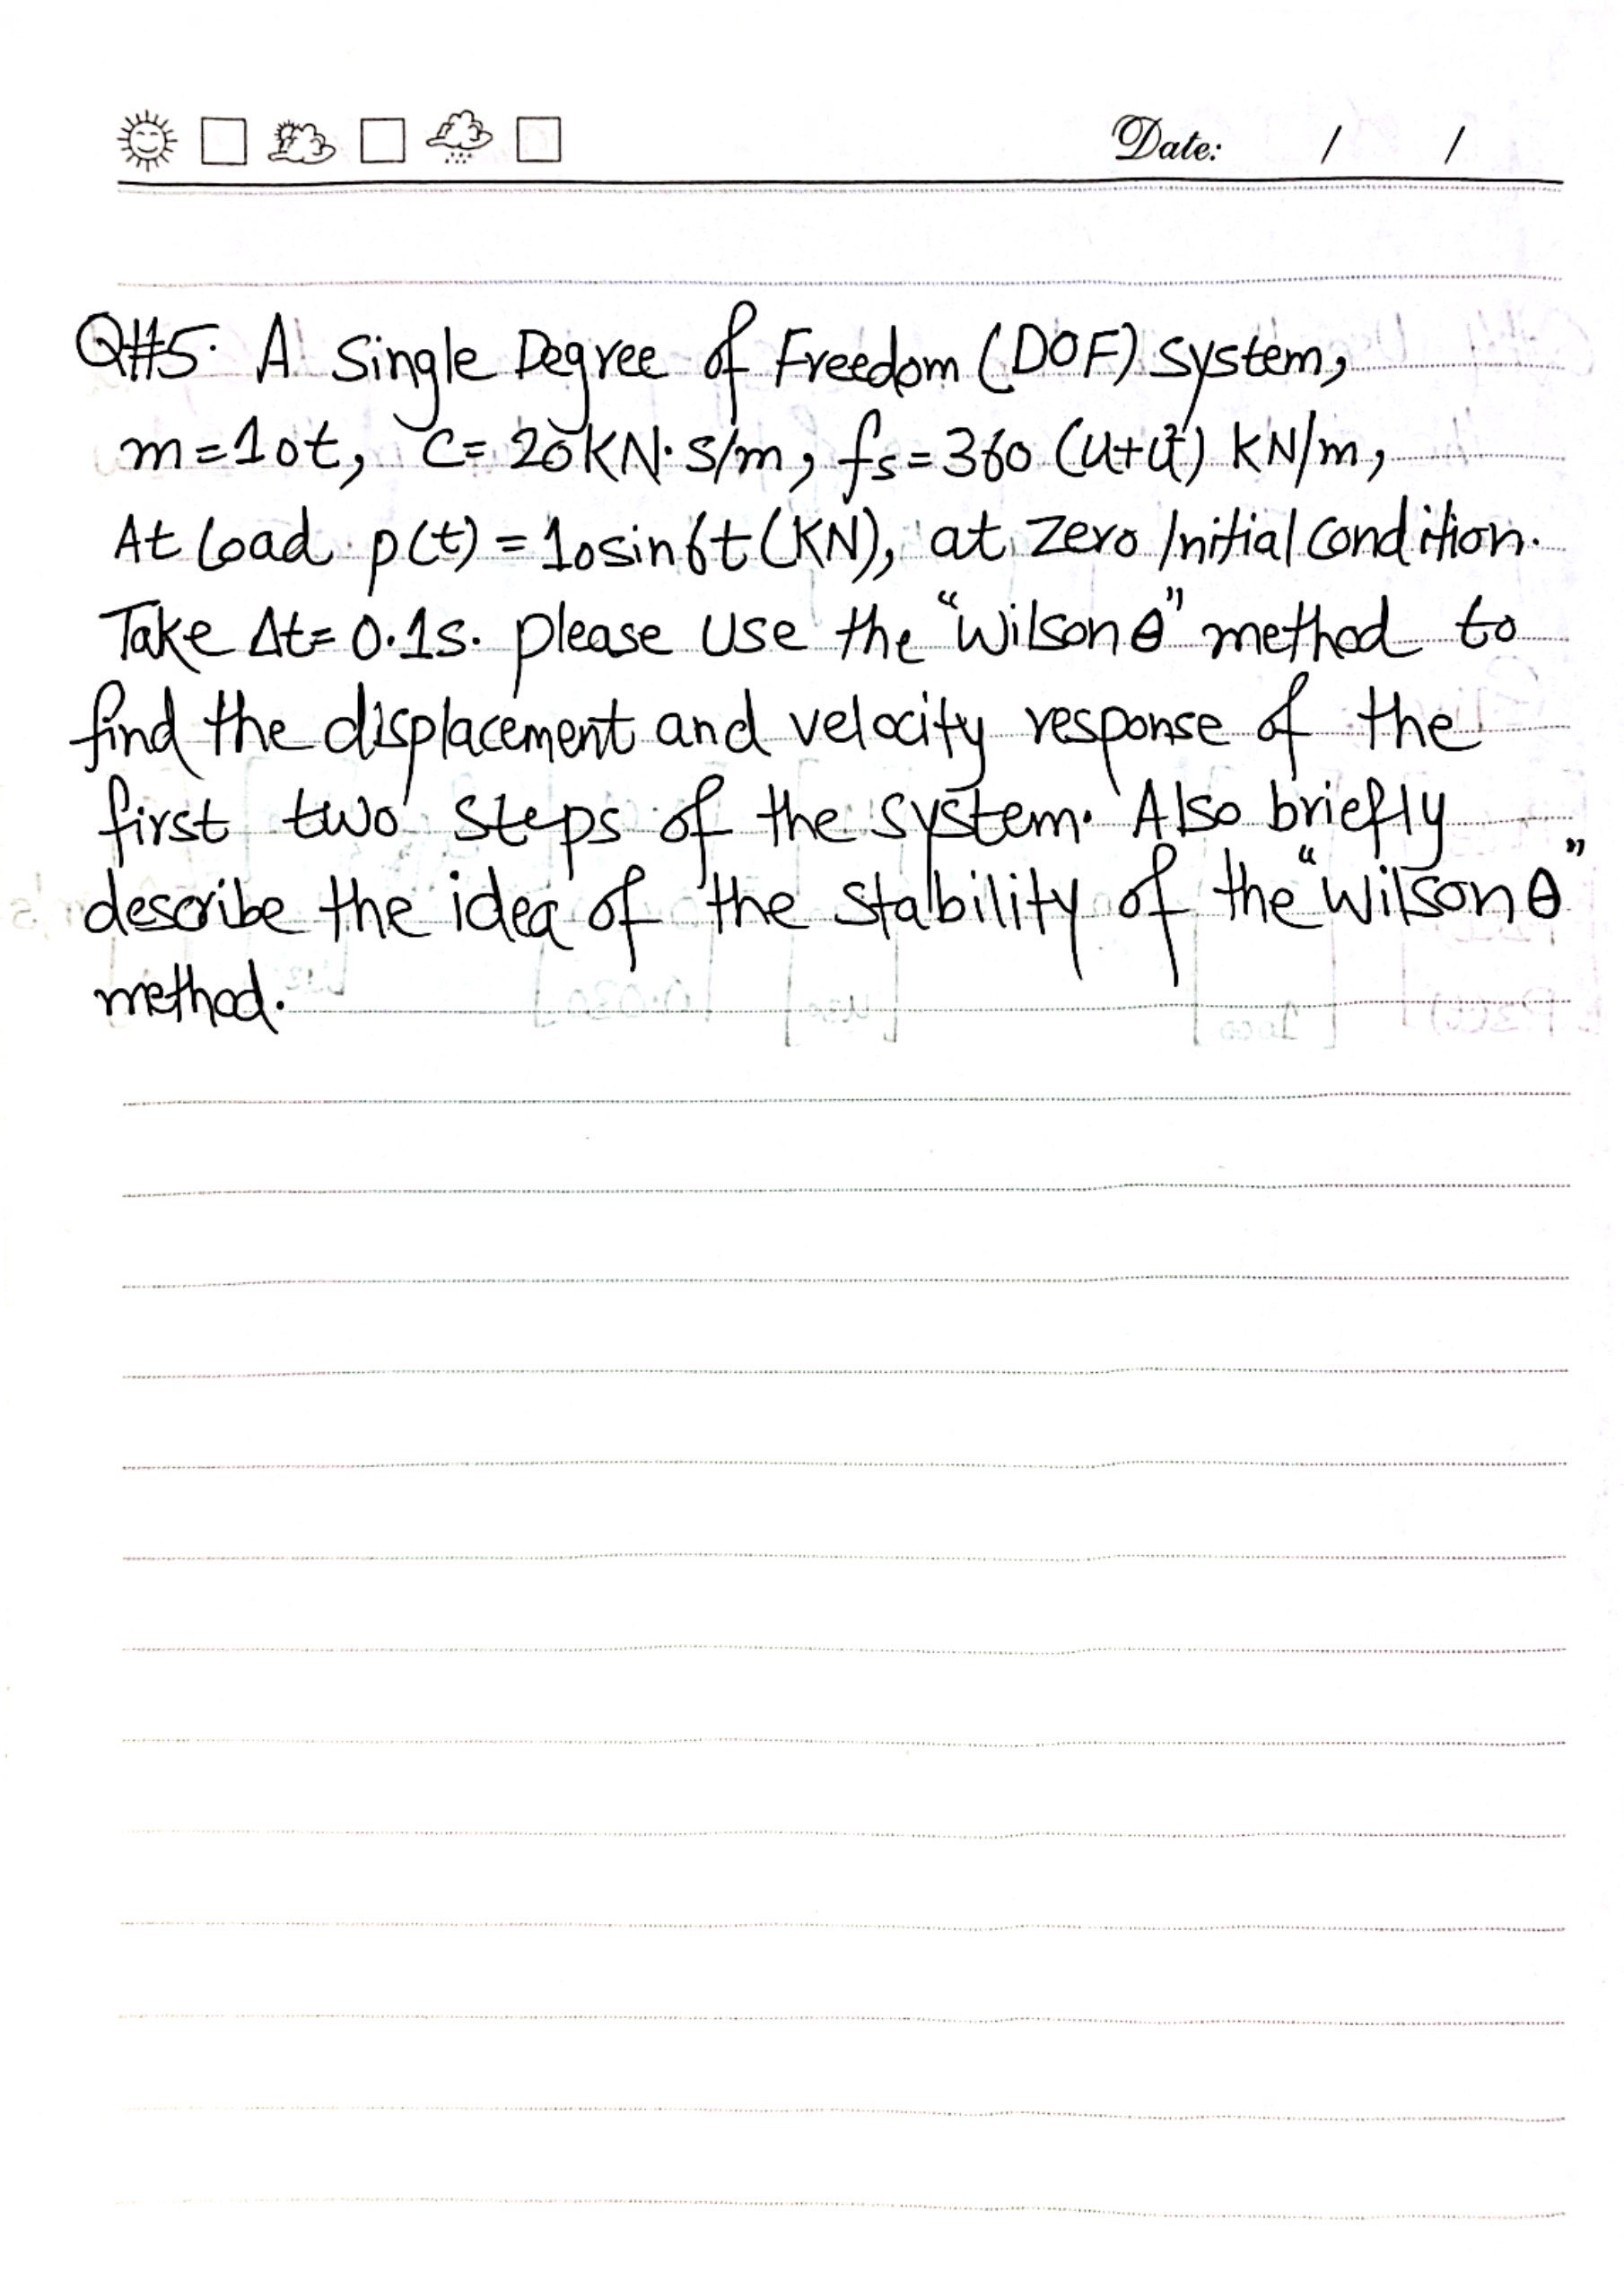 Date: / /
Q#5. A Single Degree of Freedom (DOF) system,
m=10t, C= 20KN·s/m, fs=360 (u+u²) kN/m,
At load p(t) = 10sin6t (KN), at zero Initial condition.
Take Δt= 0.1s. please use the “Wilson θ” method to
find the displacement and velocity response of the
first two steps of the system. Also briefly
describe the idea of the stability of the “Wilson θ”
method.